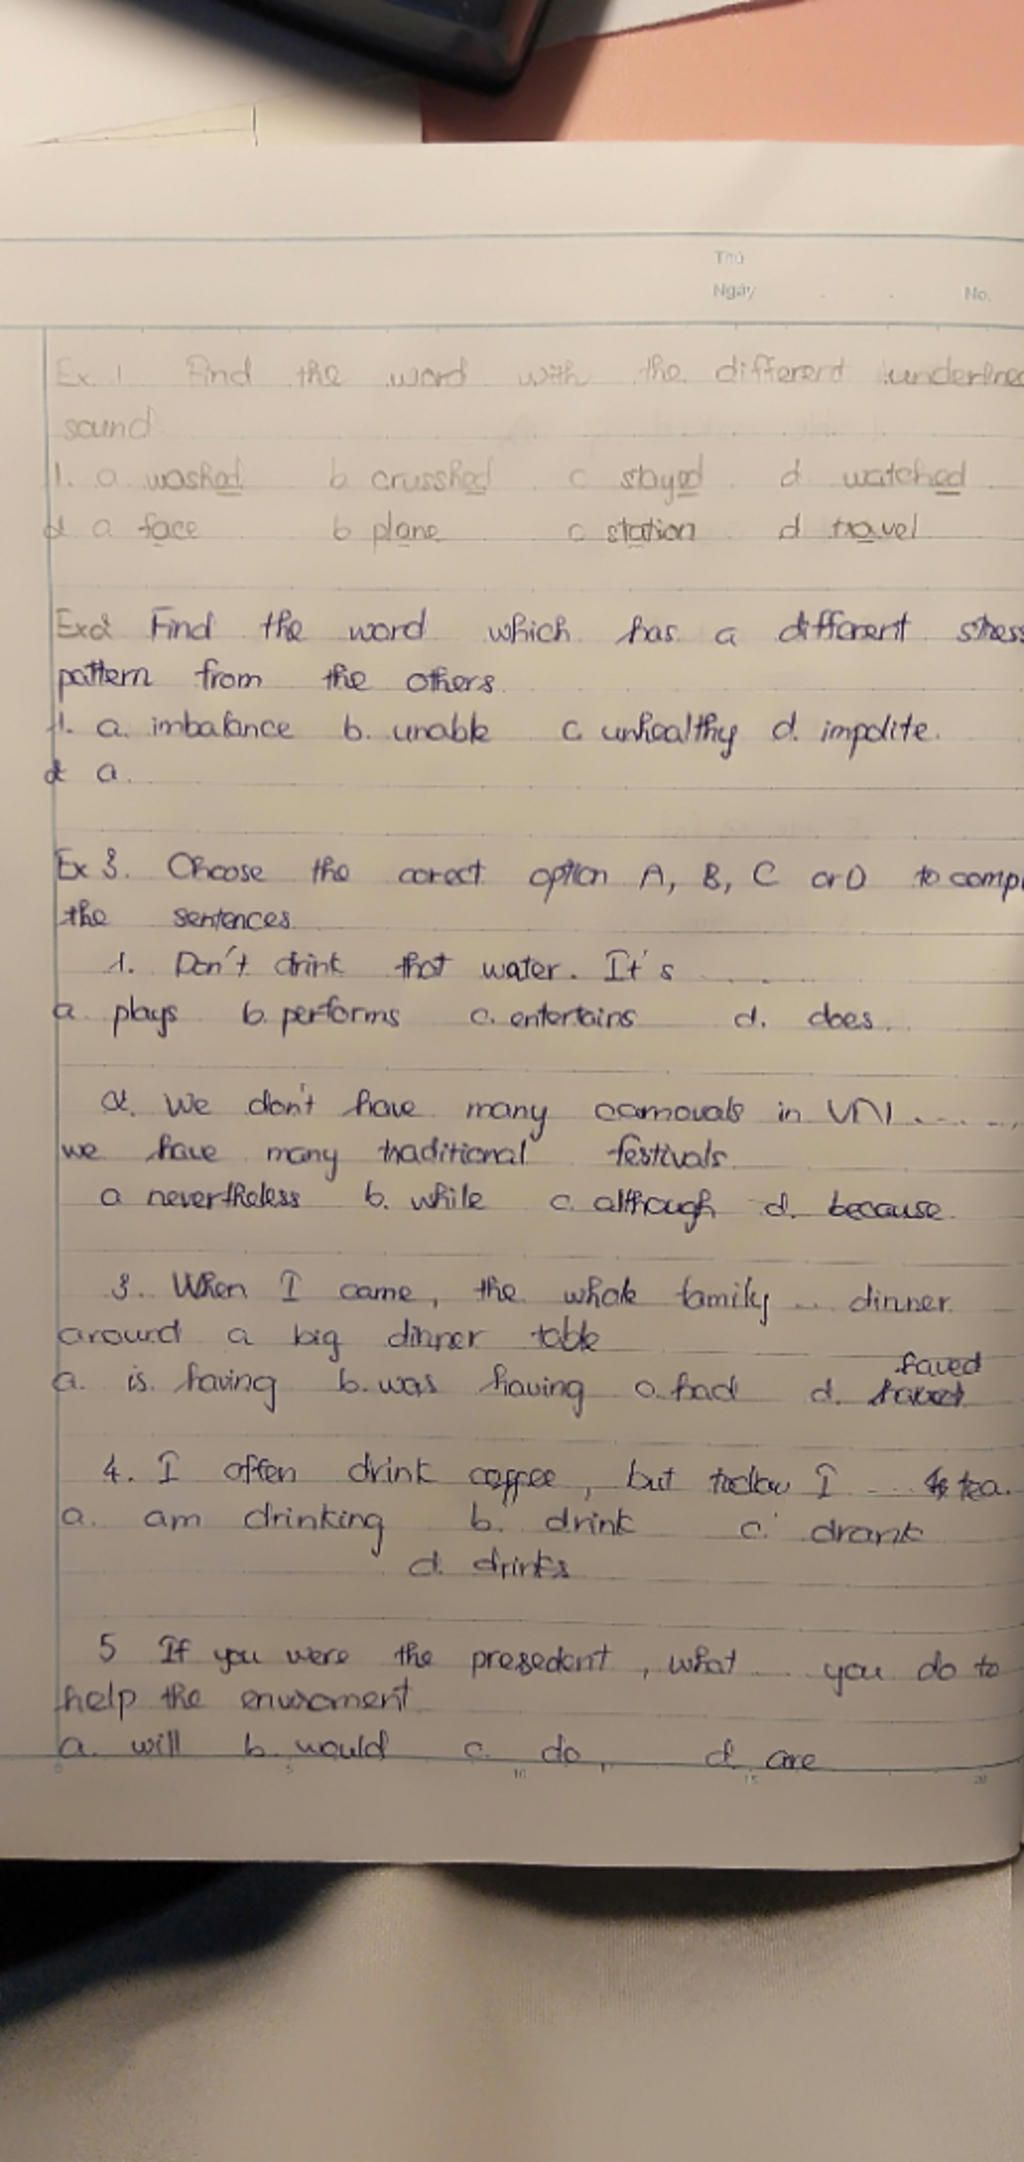 Thứ
Ngày No.
Ex 1 Find the word with the different underlined
sound
1. a washed b crusshed c stayed d watched
2 a face b plane c station d travel
Ex2 Find the word which has a different stress
pattern from the others.
1. a. imbalance b. unable c. unhealthy d. impolite.
2 a.
Ex 3. Choose the corect option A, B, C or D to comp
the sentences
1. Don't drink that water. It's ........
a. plays b. performs c. entertains d. does.
2. We don't have many carnavals in VN .....,
we have many traditional festivals
a nevertheless b. while c. although d. because.
3. When I came, the whole family ... dinner
around a big dinner table
a. is having b. was having c. had d. haved
4. I often drink coffee, but today I .... tea.
a. am drinking b. drink c. drank
d. drinks
5 If you were the presedent, what ... you do to
help the enviroment
a. will b. would c. do d are